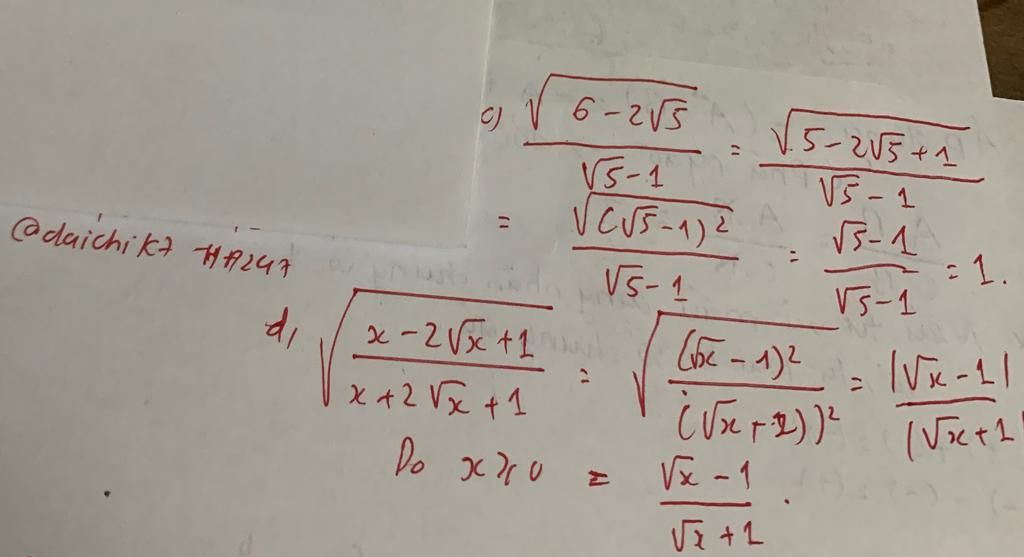 c) √(6 - 2√5) / (√5 - 1) = √(5 - 2√5 + 1) / (√5 - 1)
= √((√5 - 1)²) / (√5 - 1) = (√5 - 1) / (√5 - 1) = 1.
@daichik7 -HA247
d, √((x - 2√x + 1) / (x + 2√x + 1)) = √((√x - 1)² / (√x + 1))²) = |√x - 1| / |√x + 1|
Do x ≥ 0 = (√x - 1) / (√x + 1) .